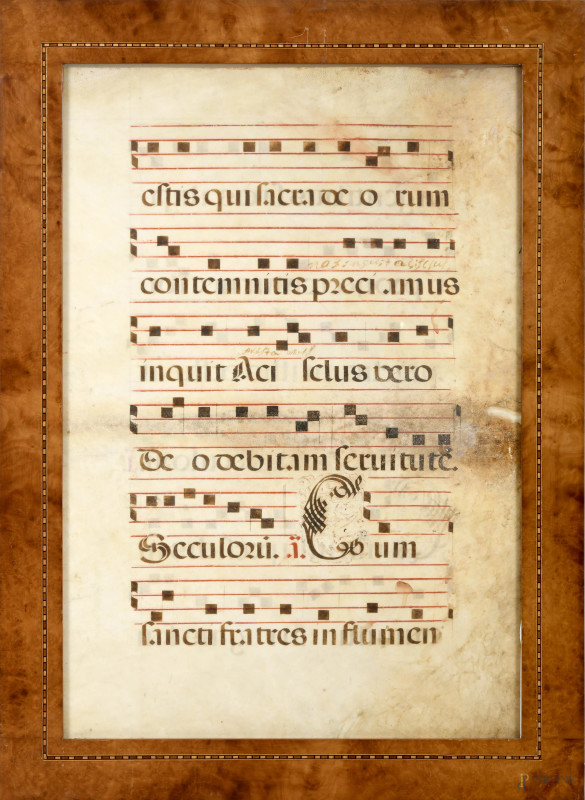 estis qui sacra de o rum
contemnitis preci amus
inquit Aci sclus vero
De o debitam seruitutē.
Seculorū. ā. Ego um
sancti fratres in flumen